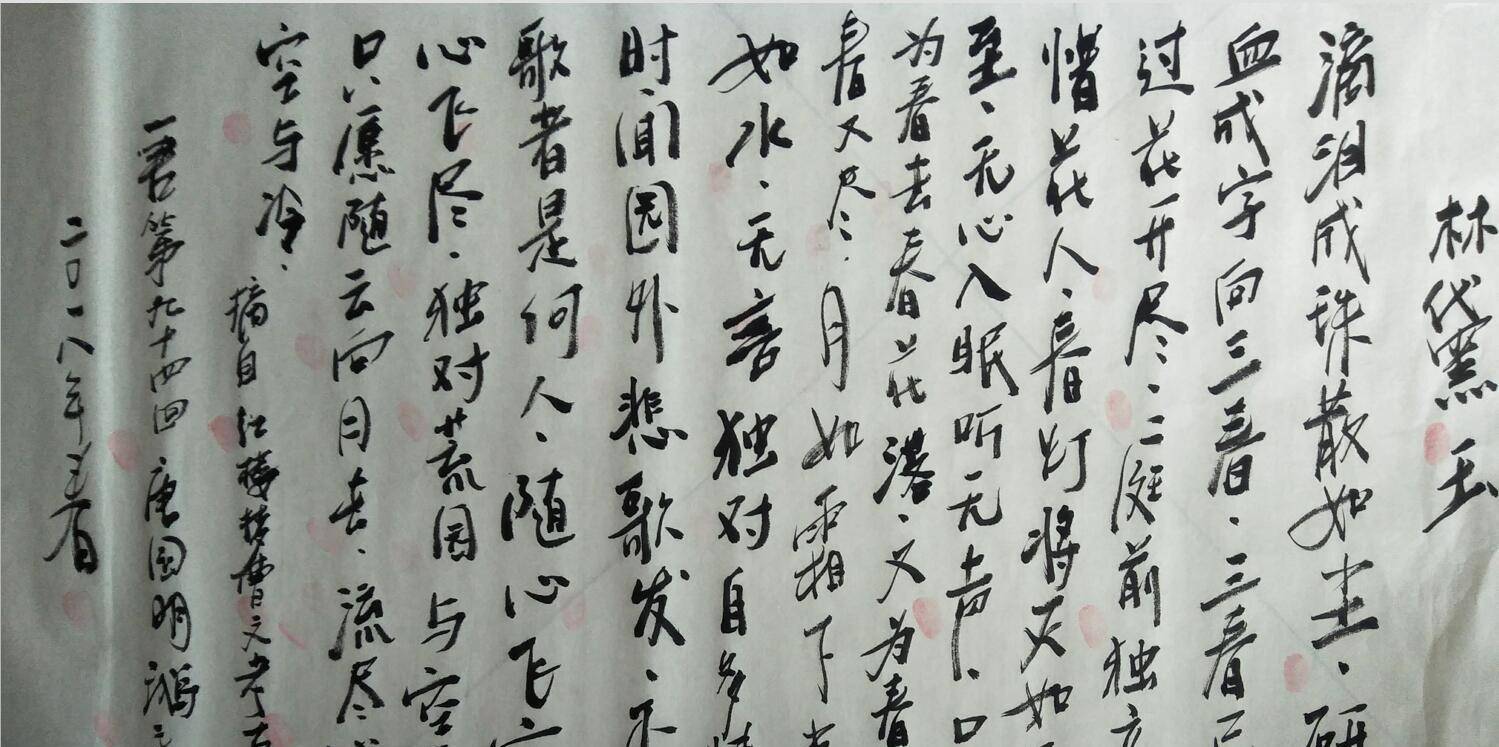 林代黑玉
滴泪成珠散如尘、研
血成字向三春、三春已
过花开尽、二庭前独立
惜花人、春灯将灭如
至、无心入眠听无声、口
为春去春花落、又为春
春又尽、月如霜下
如水、无言独对自多情
时、闻园外悲歌发、不
歌者是何人、随心飞
心飞尽、独对荒园与空
只愿随云向月去、流尽
空与冷、
摘自红楼梦曹文考古
一书第九十四回、唐国明鸿
二〇一八年春